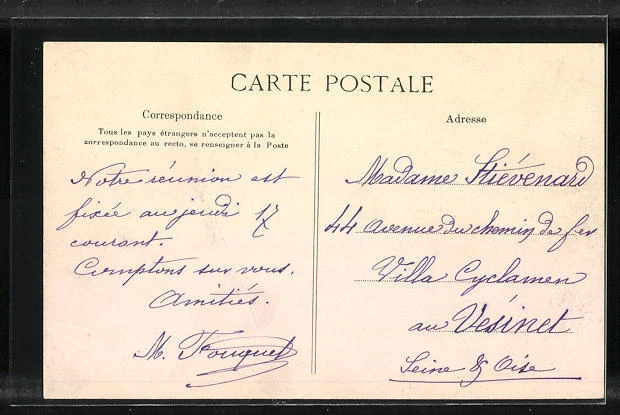 CARTE POSTALE
Correspondance
Tous les pays étrangers n'acceptent pas la
correspondance au recto, se renseigner à la Poste
Notre réunion est
fixée au jeudi 17
courant.
Comptons sur vous.
Amitiés.
M. Fouquet
Adresse
Madame Stiévenard
44 avenue du chemin de fer
Villa Cyclamen
au Vésinet
Seine & Oise